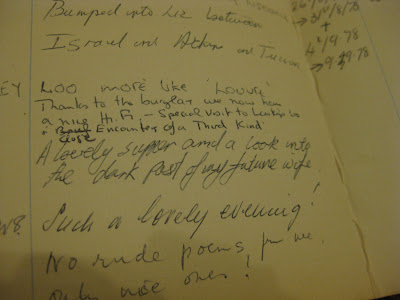 Bumped into Liz between
Israel and Athens and
31/8/78
+
4/9/78
→ 9.78
EY LOO MORE LIKE 'LOUVRE'
Thanks to the burglar we now have
a nice Hi.Fi. - Special visit to London to
Close Encounter of a Third Kind'
A lovely supper and a look into
the dark past of my future wife
Such a lovely evening!
WB. No rude poems, for me,
only nice ones!